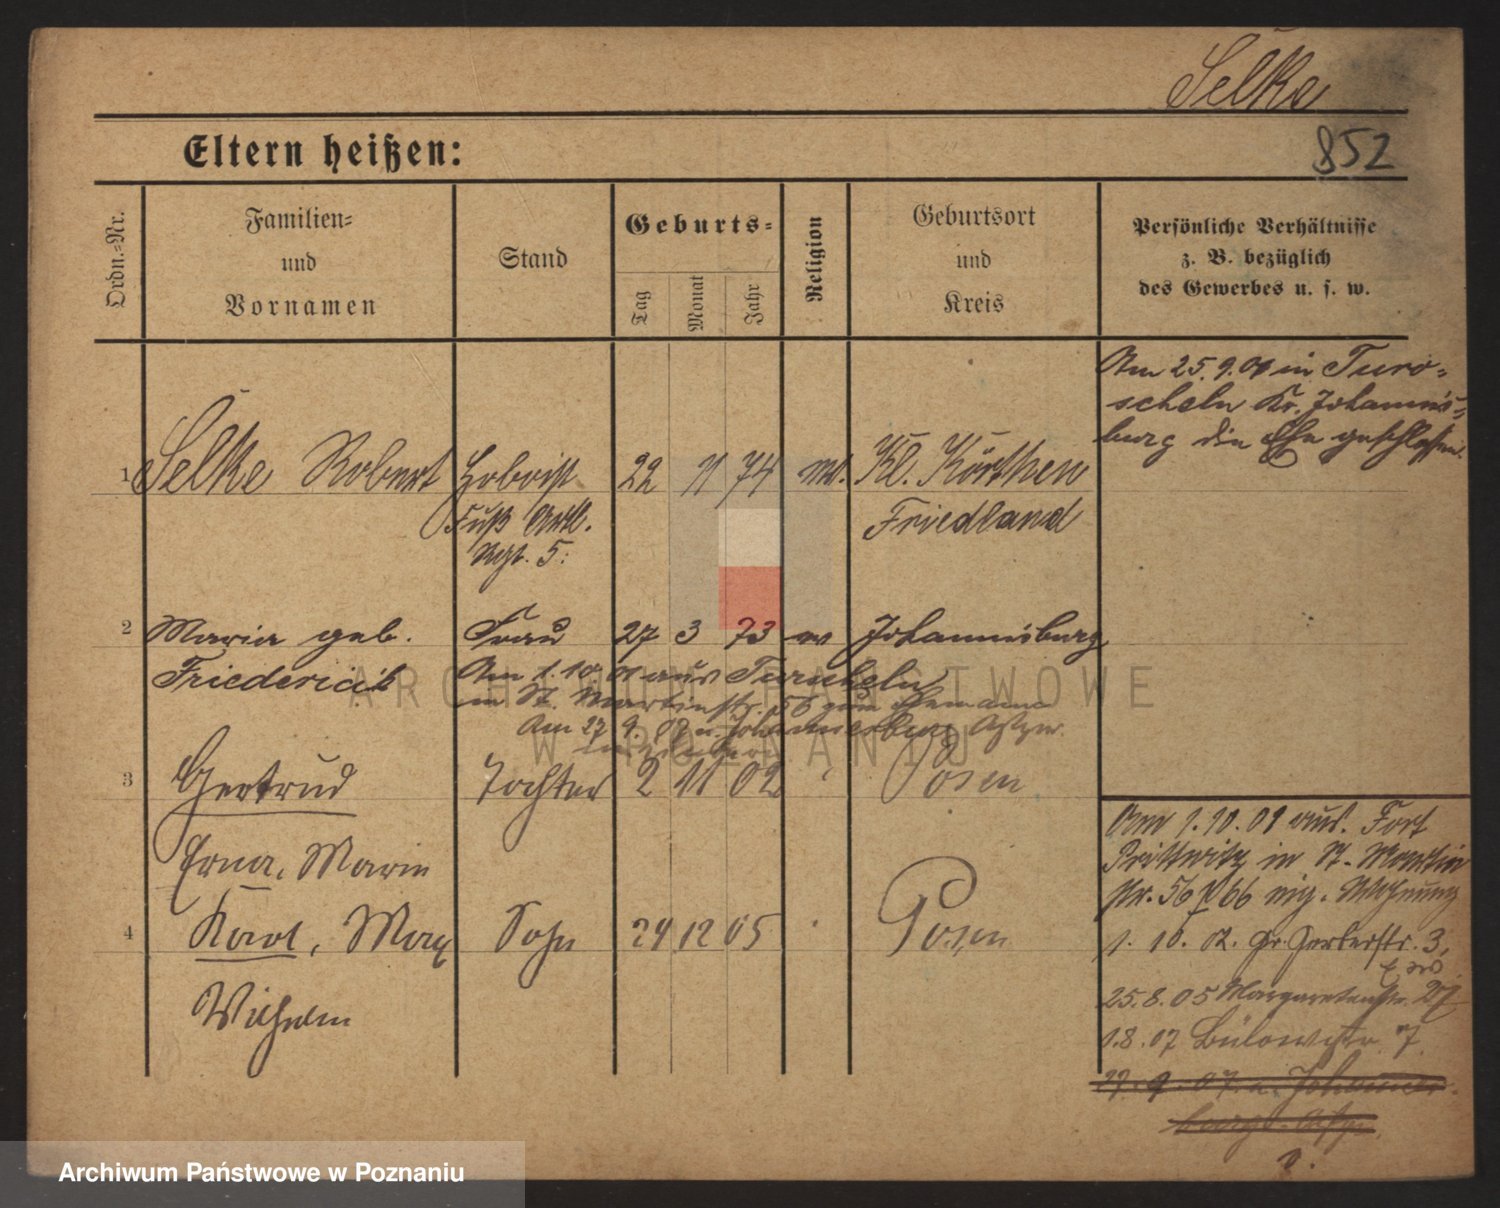 Selke
852
Eltern heißen:
Ordn.-Nr.
Familien-
und
Vornamen
Stand
Geburts-
Tag
Monat
Jahr
Religion
Geburtsort
und
Kreis
Persönliche Verhältnisse
z. B. bezüglich
des Gewerbes u. s. w.
Am 25.9.01 in Turo-
scheln Kr. Johannis-
burg die Ehe geschlossen.
1 Selke Robert Hoboist 22 11 74 Kl. Körthen
Fuß Artl. Friedland
Rgt. 5.
2 Maria geb. Frau 27 3 73 Johannisburg
Friedericik Am 1.10.01 aus Turoscheln
in St. Martinstr. 56 zum Ehemann
Am 27 9. 07 n. Johannisburg Ostpr.
3 Gertrud Tochter 2 11 02 Posen
Erna, Marie
4 Karl, Max Sohn 24 12 05 Posen
Wilhelm
Am 1.10.01 aus. Fort
Prittwitz in St. Martin
Nr. 56 66 eig. Wohnung
1. 10. 02. Gr. Gerberstr. 3,
25.8.05 Margaretenstr. 27
1.8.07 Bülowstr. 7
27.9.07 n. Johannis-
burg Ostpr.
ARCHIWUM PAŃSTWOWE
W POZNANIU
Archiwum Państwowe w Poznaniu